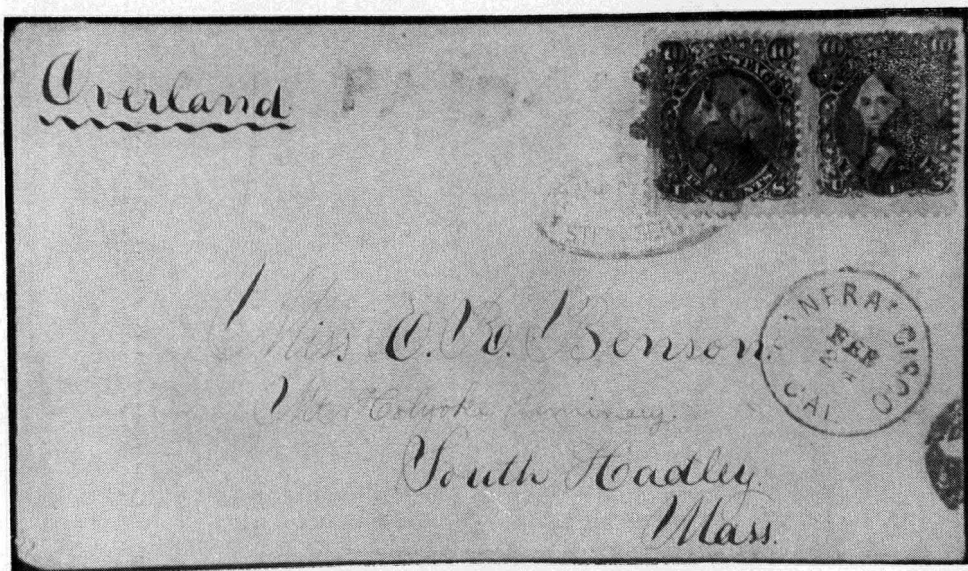 Overland
PAID
Miss E. R. Benson.
Mt. Holyoke Seminary.
South Hadley.
Mass.
AN FRANCISCO
FEB
24
CAL